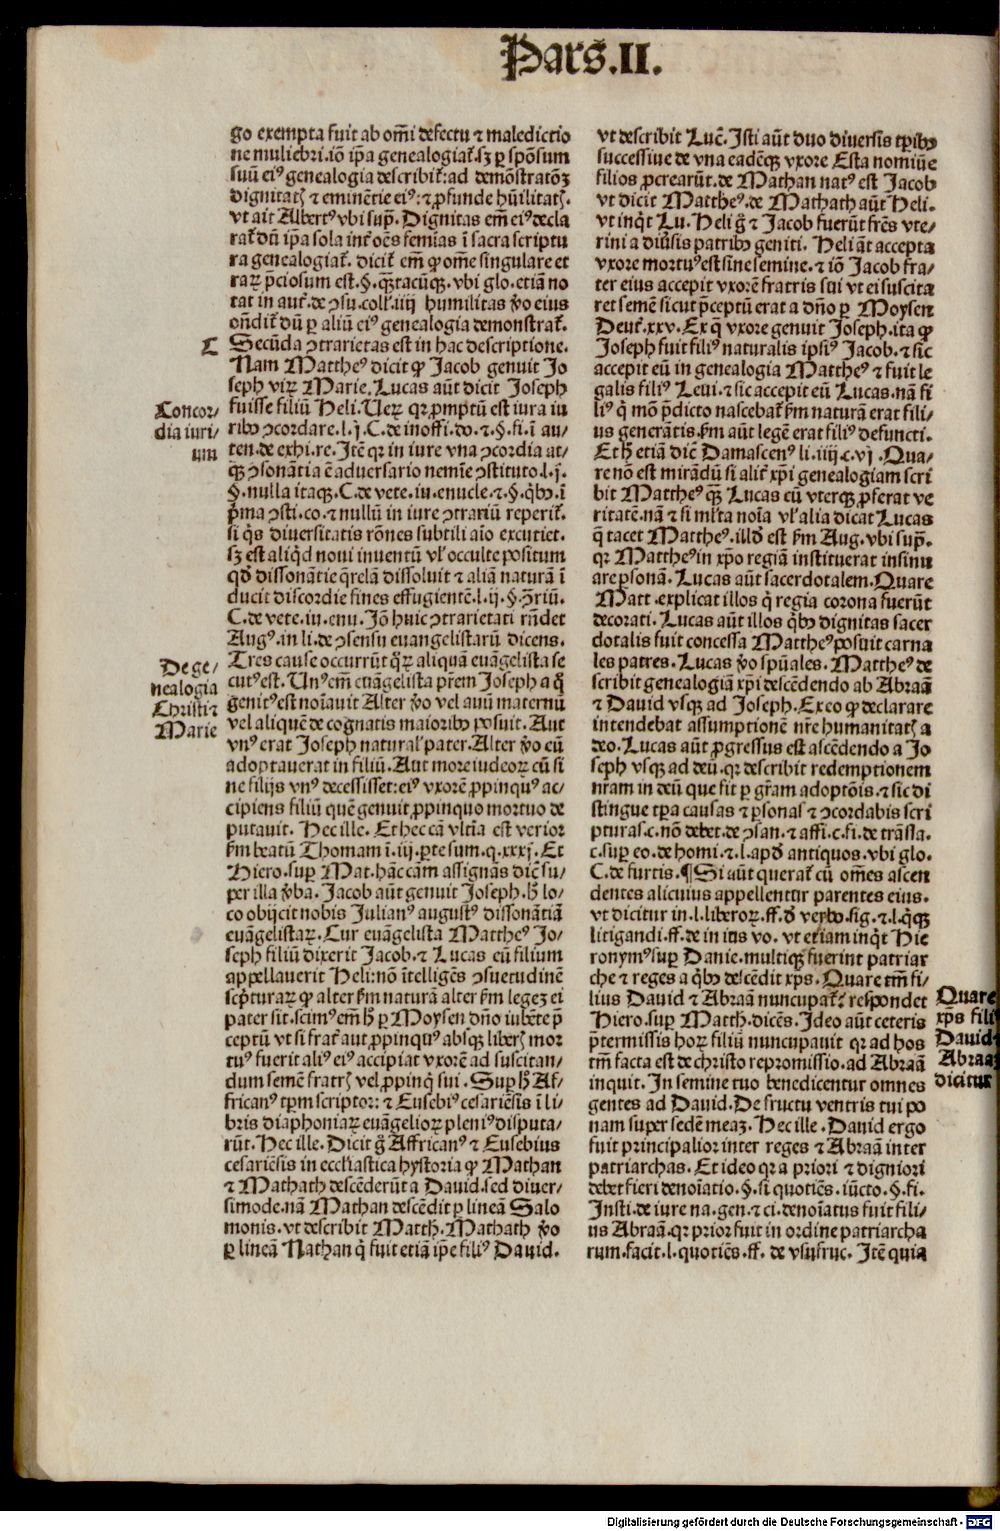 Pars̃.II.
go exempta fuit ab om̃i defectu ⁊ maledictio
ne muliebri.iõ ip̃a genealogiat̃.sꝫ ꝑ spõsum
suũ eiꝰ genealogia describit̃:ad demõstratõꝫ
dignitatꝭ ⁊ eminẽtie eiꝰ:⁊ ꝓfunde hũilitatꝭ.
vt ait Albertꝰ vbi sup̃. Dignitas em̃ eiꝰ decla
rat̃ dũ ip̃a sola int̃ oẽs femias ĩ sacra scriptu
ra genealogiat̃. dicit̃ em̃ ꝙ om̃e singulare et
raꝝ p̃ciosum est.§.qꝫtacũqꝫ.vbi glo.etiã no
tat in aut̃.de ꝯsu.coll̃.iiij humilitas ṽo eius
oñdit̃ dũ ꝑ aliũ eiꝰ genealogia demonstrat̃.
C Secũda ꝯtrarietas est in hac descriptione.
Nam Mattheꝰ dicit ꝙ Jacob genuit Jo
seph viꝝ Marie. Lucas aũt dicit Joseph
Concor⸗
dia iuri⸗
um
fuisse filiũ Heli. Ueꝝ qꝛ ꝓmptũ est iura iu
ribꝰ ꝯcordare.l.j.C.de inoffi.do.⁊.§.fi.ĩ au⸗
ten.de exhi.re.Itẽ qꝛ in iure vna ꝯcordia at⸗
qꝫ ꝯsonãtia ẽ aduersario nemĩe ꝯstituto.l.j.
§.nulla itaqꝫ.C.de vete.iu.enucle.⁊.§.q̃bꝰ.ĩ
p̃ma ꝯsti.co.⁊ nullũ in iure ꝯtrariũ reperit̃.
si q̃s diuersitatis rõnes subtili aĩo excutiet.
sꝫ est aliq̃d noui inuentũ vl̃ occulte positum
qd̃ dissonãtie q̃relã dissoluit ⁊ aliã naturã ĩ
ducit discordie fines effugientẽ.l.ij.§.ꝯ̃riũ.
C.de vete.iu.enu. Jõ huic ꝯtrarietati rñdet
Augꝰ.in li.de ꝯsensu euangelistarũ dicens.
De ge⸗
nealogia
Christi ⁊
Marie
Tres cause occurrũt q̃ꝝ aliquã euãgelista se
cutꝰ est. Unꝰ em̃ euãgelista pr̃em Joseph a q̃
genitꝰ est noĩauit Alter ṽo vel auũ maternũ
vel aliquẽ de cognatis maioribꝰ posuit. Aut
vnꝰ erat Joseph natural̃ pater. Alter ṽo eũ
adoptauerat in filiũ. Aut more iudeoꝝ cũ si
ne filijs vnꝰ decessisset:eiꝰ vxorẽ ꝓpinquꝰ ac⸗
cipiens filiũ quẽ genuit ꝓpinquo mortuo de
putauit. Hec ille. Et hec cã vltĩa est verior
fm̃ beatũ Thomam ĩ.iij.ꝑte sum.q.xxxj. Et
Hiero.sup̃ Mat.hãc cãm assignãs dic̃ su⸗
per illa ṽba. Jacob aũt genuit Joseph. h̃ lo⸗
co obijcit nobis Julianꝰ augustꝰ dissonãtiã
euãgelistaꝝ. Cur euãgelista Mattheꝰ Jo⸗
seph filiũ dixerit Jacob.⁊ Lucas eũ filium
appellauerit Heli:nõ ĩtelligẽs ꝯsuetudinẽ
scp̃turaꝝ ꝙ alter fm̃ naturã alter fm̃ legeꝫ ei
pater sit.scimꝰ em̃ h̃ ꝑ Moysen dño iubẽte p̃
ceptũ vt si frat̃ aut ꝓpinquꝰ absqꝫ liberꝭ mor
tuꝰ fuerit aliꝰ eiꝰ accipiat vxorẽ ad suscitan⸗
dum semẽ fratrꝭ vel ꝓpinq̃ sui. Sup̃ h̃ Af⸗
fricanꝰ tp̃m scriptor: ⁊ Eusebiꝰ cesariẽsis ĩ li⸗
bris diaphoniaꝝ euãgelioꝝ pleniꝰ disputa⸗
rũt. Hec ille. Dicit g̃ Affricanꝰ ⁊ Eusebius
cesariẽsis in eccl̃iastica hystoria ꝙ Mathan
⁊ Mathath descẽderũt a Dauid.sed diuer⸗
simode.nã Mathan descẽdit ꝑ lineã Salo
monis.vt describit Matth. Mathath ṽo
ꝑ lineã Nathan q̃ fuit etiã ip̃e filiꝰ Dauid.
vt describit Luc̃. Isti aũt duo diuersis tp̃ibꝰ
successiue de vna eadẽqꝫ vxore Esta nomiñe
filios ꝓcrearũt.de Mathan natꝰ est Jacob
vt dicit Mattheꝰ.de Mathath aũt Heli.
vt inq̃t Lu. Heli g̃ ⁊ Jacob fuerũt fr̃es vte⸗
rini a diũsis patribꝰ geniti. Heli ãt accepta
vxore mortuꝰ est sĩne semine.⁊ iõ Jacob fra⸗
ter eius accepit vxorẽ fratris sui vt ei suscita
ret semẽ sicut p̃ceptũ erat a dño ꝑ Moysen
Deut̃.xxv. Ex q̃ vxore genuit Joseph.ita ꝙ
Joseph fuit filiꝰ naturalis ipsiꝰ Jacob.⁊ sic
accepit eũ in genealogia Mattheꝰ ⁊ fuit le
galis filiꝰ Leui.⁊ sic accepit eũ Lucas.nã fi
liꝰ q̃ mõ p̃dicto nascebat̃ fm̃ naturã erat fili⸗
us generãtis.fm̃ aũt legẽ erat filiꝰ defuncti.
Et h̃ etiã dic̃ Damascenꝰ li.iiij.c.vj. Qua⸗
re nõ est mirãdũ si alit̃ xp̃i genealogiam scri
bit Mattheꝰ qꝫ̃ Lucas cũ vterqꝫ ꝓferat ve
ritatẽ.nã ⁊ si ml̃ta noĩa vl̃ alia dicat Lucas
q̃ tacet Mattheꝰ.illd̃ est fm̃ Aug.vbi sup̃.
qꝛ Mattheꝰ in xp̃o regiã instituerat insinu
are ꝑsonã. Lucas aũt sacerdotalem. Quare
Matt.explicat illos q̃ regia corona fuerũt
decorati. Lucas aũt illos q̃bꝰ dignitas sacer
dotalis fuit concessa Mattheꝰ posuit carna
les patres. Lucas ṽo spũales. Mattheꝰ de
scribit genealogiã xp̃i descẽdendo ab Abraã
⁊ Dauid vsqꝫ ad Joseph. Ex eo ꝙ declarare
intendebat assumptionẽ nr̃e humanitatꝭ a
deo. Lucas aũt ꝓgressus est ascẽdendo a Jo
seph vsqꝫ ad deũ.qꝛ describit redemptionem
nr̃am in deũ que fit ꝑ gr̃am adoptõis.⁊ sic di
stingue tp̃a causas ⁊ ꝑsonas ⁊ ꝯcordabis scri
pturas.c.nõ debet.de ꝯsan.⁊ affi.c.fi.de trãsla.
c.sup̃ eo.de homi.⁊.l.apd̃ antiquos.vbi glo.
C.de furtis.¶Si aũt querat̃ cũ om̃es ascen
dentes alicuius appellentur parentes eius.
vt dicitur in.l.liberoꝝ.ff.d̃ verbꝰ.sig.⁊.l.q̃qꝫ
litigandi.ff.de in ius vo. vt etiam inq̃t Hie
ronymꝰ sup̃ Danie.multiqꝫ fuerint patriar
che ⁊ reges a q̃bꝰ descẽdit xp̃s. Quare tm̃ fi⸗
lius Dauid ⁊ Abraã nuncupat̃? respondet
Quare
xp̃s fili
Dauid ⁊
Abraaꝫ
dicitur
Hiero.sup̃ Matth.dicẽs. Ideo aũt ceteris
p̃termissis hoꝝ filiũ nuncupauit qꝛ ad hos
tm̃ facta est de christo repromissio.ad Abraã
inquit. In semine tuo benedicentur omnes
gentes ad Dauid. De fructu ventris tui po
nam super sedẽ meaꝫ. Hec ille. Dauid ergo
fuit principalior inter reges ⁊ Abraã inter
patriarchas. Et ideo qꝛ a priori ⁊ digniori
debet fieri denoĩatio.§.si quotiẽs.iũcto.§.fi.
Insti.de iure na.gen.⁊ ci.denoĩatus fuit fili⸗
us Abraã.qꝛ prior fuit in ordine patriarcha
rum.facit.l.quotiẽs.ff. de vsufruc. Itẽ quia
Digitalisierung gefördert durch die Deutsche Forschungsgemeinschaft - DFG